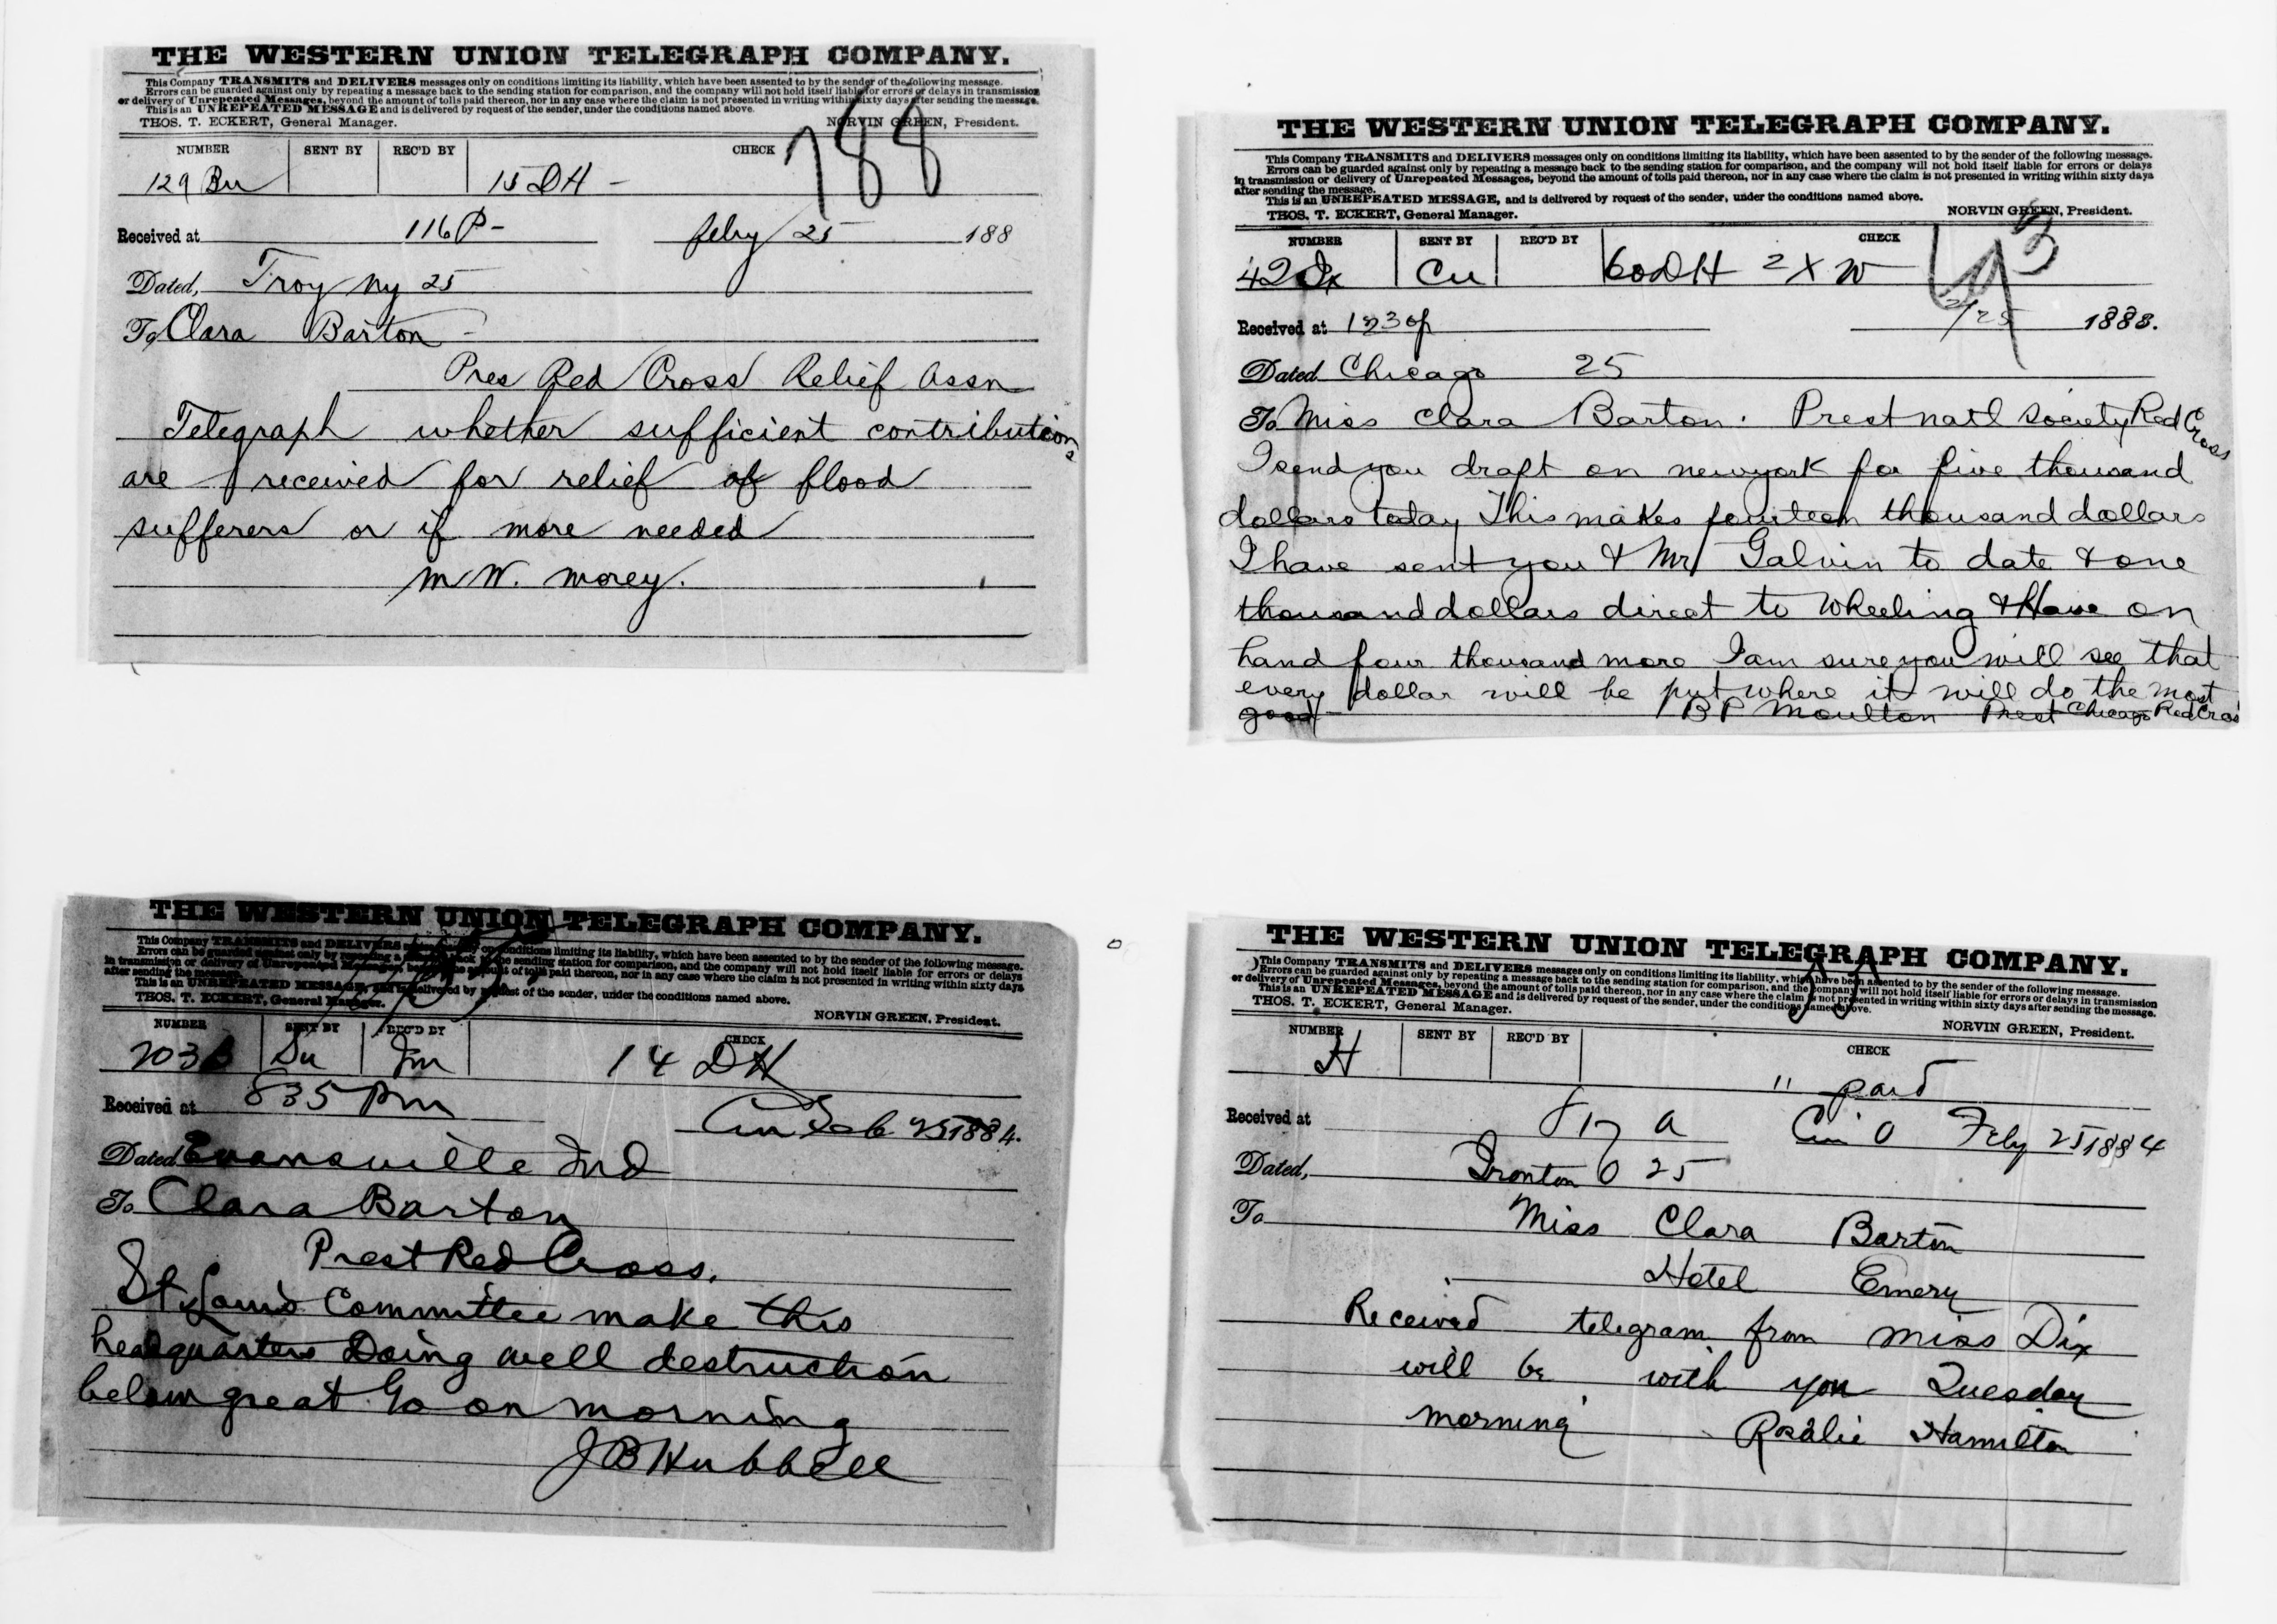 THE WESTERN UNION TELEGRAPH COMPANY.
This Company TRANSMITS and DELIVERS messages only on conditions limiting its liability, which have been assented to by the sender of the following message.
Errors can be guarded against only by repeating a message back to the sending station for comparison, and the company will not hold itself liable for errors or delays in transmission
or delivery of Unrepeated Messages, beyond the amount of tolls paid thereon, nor in any case where the claim is not presented in writing within sixty days after sending the message.
This is an UNREPEATED MESSAGE and is delivered by request of the sender, under the conditions named above.
THOS. T. ECKERT, General Manager. NORVIN GREEN, President.
NUMBER SENT BY REC'D BY CHECK
129 Bu 15 DH - 188
Received at 116 P - feby 25 188
Dated, Troy ny 25
To Clara Barton -
Pres Red Cross Relief Assn
Telegraph whether sufficient contributions
are received for relief of flood
sufferers or if more needed
M W. Morey.
THE WESTERN UNION TELEGRAPH COMPANY.
This Company TRANSMITS and DELIVERS messages only on conditions limiting its liability, which have been assented to by the sender of the following message.
Errors can be guarded against only by repeating a message back to the sending station for comparison, and the company will not hold itself liable for errors or delays
in transmission or delivery of Unrepeated Messages, beyond the amount of tolls paid thereon, nor in any case where the claim is not presented in writing within sixty days
after sending the message.
This is an UNREPEATED MESSAGE, and is delivered by request of the sender, under the conditions named above.
THOS. T. ECKERT, General Manager. NORVIN GREEN, President.
NUMBER SENT BY REC'D BY CHECK
42 Cu 60 DH 2 X W
Received at 2/25 1888.
Dated Chicago 25
To Miss Clara Barton. Prest natl society Red Cross
I send you draft on newyork for five thousand
dollars today This makes fourteen thousand dollars
I have sent you & Mr Galvin to date & one
thousand dollars direct to Wheeling & Have on
hand four thousand more I am sure you will see that
every dollar will be put where it will do the most
good B P Moulton Prest Chicago Red Cros
THE WESTERN UNION TELEGRAPH COMPANY.
This Company TRANSMITS and DELIVERS on conditions limiting its liability, which have been assented to by the sender of the following message.
Errors can be guarded against only by repeating a back to the sending station for comparison, and the company will not hold itself liable for errors or delays
in transmission or delivery of Unrepeated Messages, the amount of tolls paid thereon, nor in any case where the claim is not presented in writing within sixty days
after sending the message.
This is an UNREPEATED MESSAGE, and is delivered by request of the sender, under the conditions named above.
THOS. T. ECKERT, General Manager.
NORVIN GREEN, President.
NUMBER SENT BY REC'D BY CHECK
203 Su Jm 14 DH
Received at 835 Pm Cin Feb 25 1884.
Dated Evansville Ind
To Clara Barton
Prest Red Cross.
St Louis Committee make this
headquarters Doing well destruction
below great Go on morning
J B Hubbell
THE WESTERN UNION TELEGRAPH COMPANY.
This Company TRANSMITS and DELIVERS messages only on conditions limiting its liability, which have been assented to by the sender of the following message.
Errors can be guarded against only by repeating a message back to the sending station for comparison, and the company will not hold itself liable for errors or delays in transmission
or delivery of Unrepeated Messages, beyond the amount of tolls paid thereon, nor in any case where the claim is not presented in writing within sixty days after sending the message.
This is an UNREPEATED MESSAGE and is delivered by request of the sender, under the conditions named above.
THOS. T. ECKERT, General Manager.
NORVIN GREEN, President.
NUMBER SENT BY REC'D BY CHECK
H " paid
Received at 817 a Cin O Feby 25 1884
Dated, Ironton O 25
To Miss Clara Barton
Hotel Emery
Received telegram from Miss Dix
will be with you Tuesday
morning Rosalie Hamilton